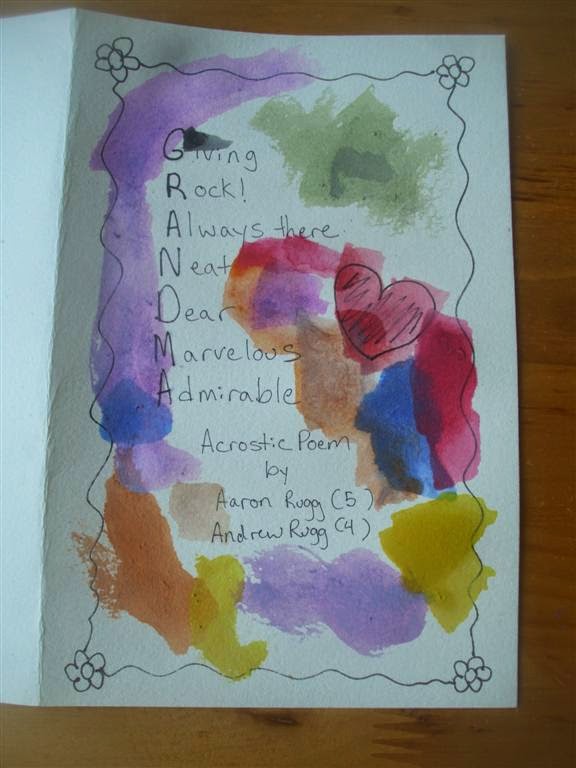 Giving
Rock!
Always there
Neat
Dear
Marvelous
Admirable
Acrostic Poem
by
Aaron Rugg (5)
Andrew Rugg (4)